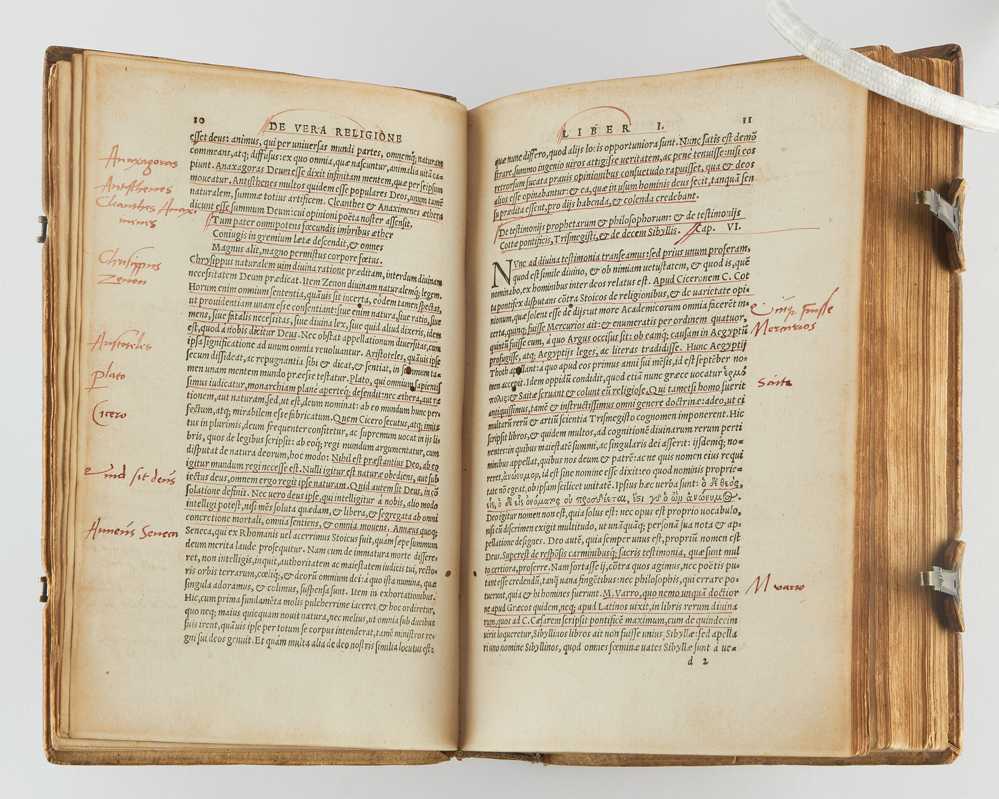 10
DE VERA RELIGIONE
esset deus: animus, qui per uniuersas mundi partes, omnemq; naturam
commeans, atq; diffusus: ex quo omnia, quæ nascuntur, animalia uitã ca-
piunt. Anaxagoras Deum esse dixit infinitam mentem, quæ per seipsum
moueatur. Antisthenes multos quidem esse populares Deos, unum tamẽ
naturalem, summæ totius artificem. Cleanthes & Anaximenes æthera
dicunt esse summum Deum: cui opinioni poëta noster assensit.
Tum pater omnipotens fœcundis imbribus æther
Coniugis in gremium letæ descendit, & omnes
Magnus alit, magno permistus corpore fœtus.
Chrysippus naturalem uim diuina ratione præditam, interdum diuinam
necessitatem Deum prædicat. Item Zenon diuinam naturalemq; legem.
Horum enim omnium sententia, quãuis sit incerta, eodem tamen spectat,
ut prouidentiam unam esse consentiant: siue enim natura, siue ratio, siue
mens, siue fatalis necessitas, siue diuina lex, siue quid aliud dixeris, idem
est, quod a nobis dicitur Deus. Nec obstat appellationum diuersitas, cum
ipsa significatione ad unum omnia reuoluantur. Aristoteles, quãuis ipse
secum dissideat, ac repugnantia sibi & dicat, & sentiat, in summum ta-
men unam mentem mundo præesse testatur. Plato, qui omnium sapientis
simus iudicatur, monarchiam plane aperteq; defendit: nec æthera, aut ra
tionem, aut naturam. sed, ut est, deum nominat: ab eo mundum hunc per-
fectum, atq; mirabilem esse fabricatum. Quem Cicero secutus, atq; imita
tus in plurimis, deum frequenter confitetur, ac supremum uocat in ijs li-
bris, quos de legibus scripsit: ab eoq; regi mundum argumentatur, cum
disputat de natura deorum, hoc modo: Nihil est præstantius Deo, ab eo
igitur mundum regi necesse est. Nulli igitur est naturæ obediens, aut sub
iectus deus, omnem ergo regit ipse naturam. Quid autem sit Deus, in cõ
solatione definit. Nec uero deus ipse, qui intelligitur a nobis, alio modo
intelligi potest, nisi mẽs soluta quædam, & libera, & segregata ab omni
concretione mortali, omnia sentiens, & omnia mouens. Annæus quoq;
Seneca, qui ex Rhomanis uel acerrimus Stoicus fuit, quàm sæpe summum
deum merita laude prosequitur. Nam cum de immatura morte dissere-
ret, non intelligis, inquit, authoritatem ac maiestatem iudicis tui, recto-
ris orbis terrarum, cœliq;, & deorũ omnium dei: a quo ista numina, quæ
singula adoramus, & colimus, suspensa sunt. Item in exhortationibus.
Hic, cum prima fundamẽta molis pulcherrimæ iaceret, & hoc ordiretur,
quo neq; maius quicquam nouit natura, nec melius, ut omnia sub ducibus
suis irent, quãuis ipse per totum se corpus intenderat, tamẽ ministros re-
gni sui deos genuit. Et quàm multa alia de deo nostris similia locutus est?
Anaxagoras
Antisthenes
Cleanthes Anaxi
menes
Chrisippus
Zenon
Aristoteles
Plato
Cicero
Quid sit deus
Anneus Seneca
LIBER I.
11
quæ nunc differo, quod alijs locis opportuniora sunt. Nunc satis est demõ
strare, summo ingenio uiros attigisse ueritatem, ac penè tenuisse: nisi eos
retrorsum fucata prauis opinionibus consuetudo rapuisset, qua & deos
alios esse opinabantur: & ea, quæ in usum hominis deus fecit, tanquã sen
su prædita essent, pro dijs habenda, & colenda credebant.
De testimonijs prophetarum & philosophorum: & de testimonijs
Cottæ pontificis, Trismegisti, & de decem Sibyllis. Cap. VI.
NVnc ad diuina testimonia transeamus: sed prius unum proferam,
quod est simile diuino, & ob nimiam uetustatem, & quod is, quẽ
nominabo, ex hominibus inter deos relatus est. Apud Ciceronem C. Cot
ta pontifex disputans cõtra Stoicos de religionibus, & de uarietate opi-
nionum, quæ solent esse de dijs: ut more Academicorum omnia faceret in-
certa, quinq; fuisse Mercurios ait: & enumeratis per ordinem quatuor,
quintũ fuisse eum, à quo Argus occisus sit: ob eamq; causam in Aegyptũ
profugisse, atq; Aegyptijs leges, ac literas tradidisse. Hunc Aegyptij
Thoth appellant: a quo apud eos primus anni sui mẽsis, id est septẽber no-
men accepit. Idem oppidũ condidit, quod etiã nunc græce uocatur ἑρμό
πολις: & Saitæ seruant & colunt eũ religiose. Qui tametsi homo fuerit
antiquissimus, tamẽ & instructissimus omni genere doctrinæ: adeo, ut ei
multarũ rerũ & artiũ scientia Trismegisto cognomen imponerent. Hic
scripsit libros, & quidem multos, ad cognitionẽ diuinarum rerum perti
nentes: in quibus maiestatẽ summi, ac singularis dei asserit: ijsdemq; no-
minibus appellat, quibus nos deum & patrẽ: ac ne quis nomen eius requi
reret, ἀνώνυμον, id est sine nomine esse dixit: eo quod nominis proprie-
tate nõ egeat, ob ipsam scilicet unitatẽ. Ipsius hæc uerba sunt: ὁ δὲ θεὸς,
εἷς, ὁ δὲ εἷς ὀνόματος οὐ προσδέεται, ἔσι γὰρ ὁ ὢν ἀνώνυμος.
Deo igitur nomen non est, quia solus est: nec opus est proprio uocabulo,
nisi cũ discrimen exigit multitudo, ut unãquãq; personã sua nota & ap-
pellatione designes. Deo autẽ, quia semper unus est, propriũ nomen est
Deus. Superest de respõsis carminibusq; sacris testimonia, quæ sunt mul
to certiora, proferre. Nam fortasse ij, cõtra quos agimus, nec poëtis pu-
tant esse credendũ, tanq̃ uana fingẽtibus: nec philosophis, qui errare po-
tuerint, quia & hi homines fuerint. M. Varro, quo nemo unquã doctior
ne apud Græcos quidem, neq; apud Latinos uixit, in libris rerum diuina
rum, quos ad C. Cæsarem scripsit pontificẽ maximum, cum de quindecim
uiris loqueretur, Sibyllinos libros ait non fuisse unius Sibyllæ: sed apella
ri uno nomine Sibyllinos, quod omnes fœminæ uates Sibyllæ sunt à ue-
d 2
Quinq; fuisse
Mercurios
Saitæ
M varro